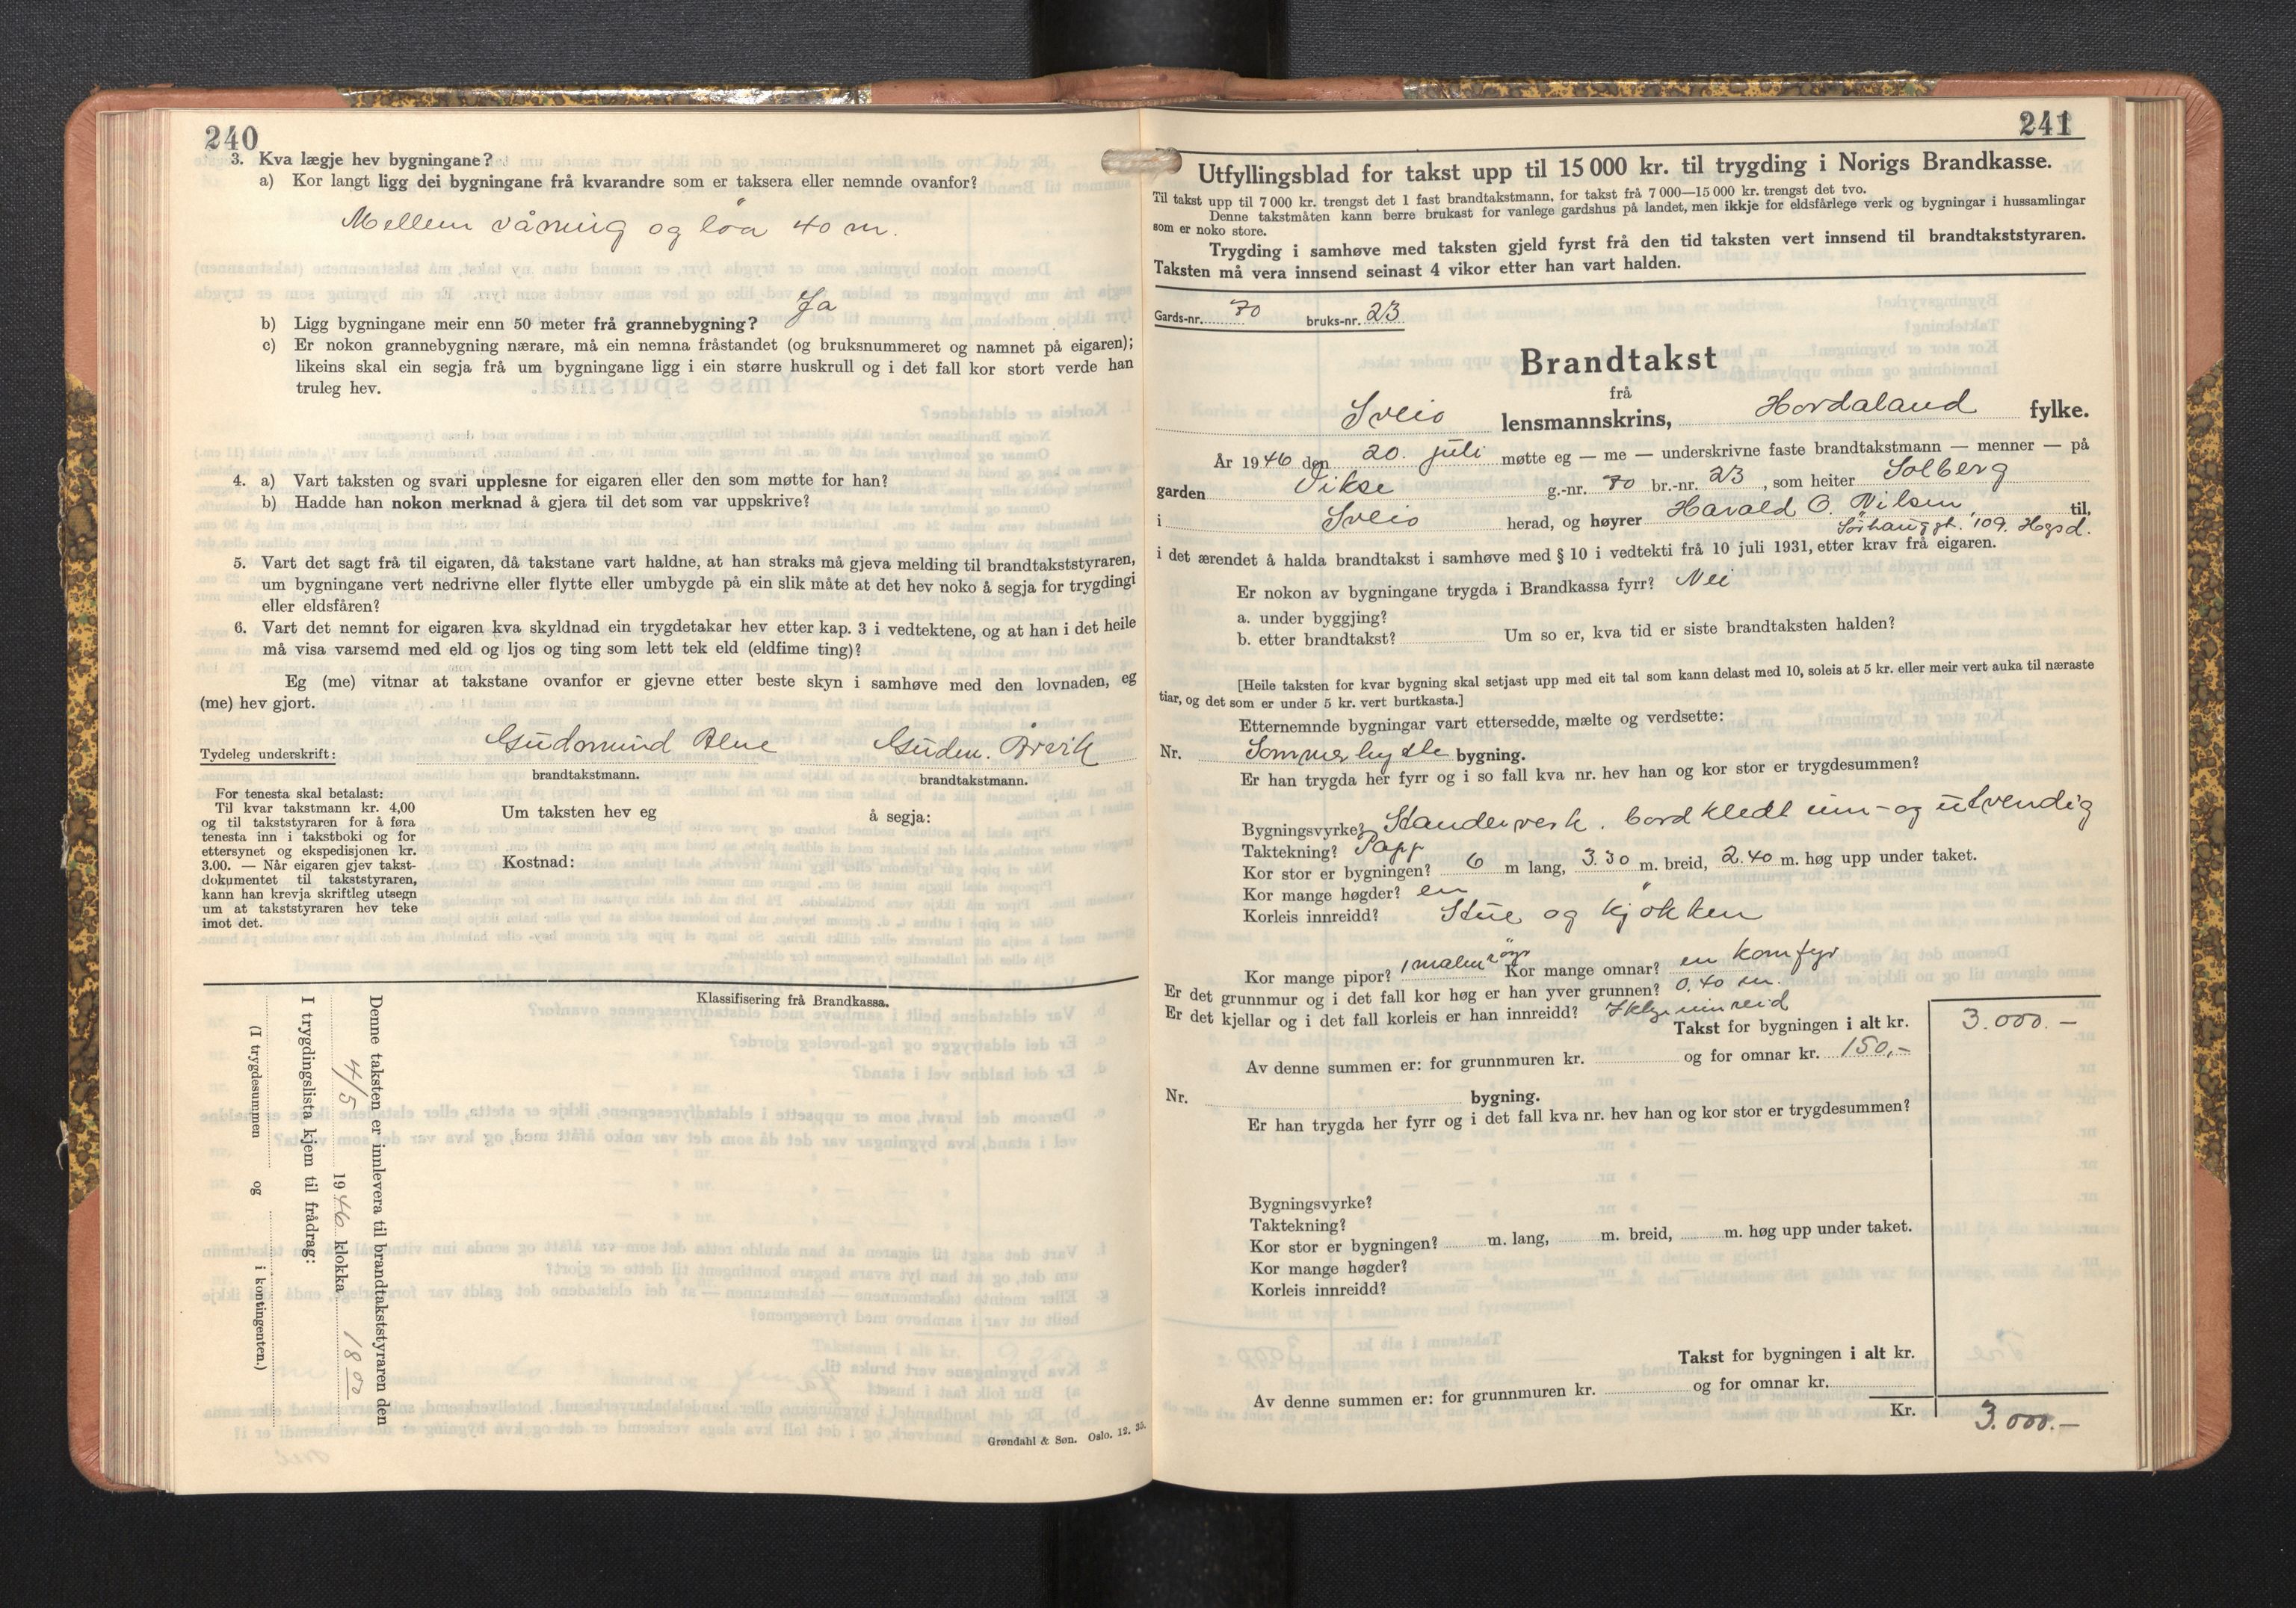 240
3. Kva lægje hev bygningane?
a) Kor langt ligg dei bygningane frå kvarandre som er taksera eller nemnde ovanfor?
Mellem våning og löa 40 m.
b) Ligg bygningane meir enn 50 meter frå grannebygning? Ja
c) Er nokon grannebygning nærare, må ein nemna fråstandet (og bruksnummeret og namnet på eigaren);
likeins skal ein segja frå um bygningane ligg i ein større huskrull og i det fall kor stort verde han
truleg hev.
4. a) Vart taksten og svari upplesne for eigaren eller den som møtte for han?
b) Hadde han nokon merknad å gjera til det som var uppskrive?
5. Vart det sagt frå til eigaren, då takstane vart haldne, at han straks må gjeva melding til brandtakststyraren,
um bygningane vert nedrivne eller flytte eller umbygde på ein slik måte at det hev noko å segja for trygdingi
eller eldsfåren?
6. Vart det nemnt for eigaren kva skyldnad ein trygdetakar hev etter kap. 3 i vedtektene, og at han i det heile
må visa varsemd med eld og ljos og ting som lett tek eld (eldfime ting)?
Eg (me) vitnar at takstane ovanfor er gjevne etter beste skyn i samhøve med den lovnaden, eg
(me) hev gjort.
Tydeleg underskrift: Gudmund Alne Gudm. Årvik
brandtakstmann. brandtakstmann.
For tenesta skal betalast:
Til kvar takstmann kr. 4,00
og til takststyraren for å føra
tenesta inn i takstboki og for
ettersynet og ekspedisjonen kr.
3.00. — Når eigaren gjev takst-
dokumentet til takststyraren,
kann han krevja skriftleg utsegn
um at takststyraren hev teke
imot det.
Um taksten hev eg å segja:
Kostnad:
Klassifisering frå Brandkassa.
Denne taksten er innlevera til brandtakststyraren den
4/5 1946 klokka 18 00
I trygdingslista kjem til frådrag:
(I trygdesummen og i kontingenten.)
Grøndahl & Søn. Oslo. 12. 35.
241
Utfyllingsblad for takst upp til 15 000 kr. til trygding i Norigs Brandkasse.
Til takst upp til 7 000 kr. trengst det 1 fast brandtakstmann, for takst frå 7 000—15 000 kr. trengst det tvo.
Denne takstmåten kann berre brukast for vanlege gardshus på landet, men ikkje for eldsfårlege verk og bygningar i hussamlingar
som er noko store.
Trygding i samhøve med taksten gjeld fyrst frå den tid taksten vert innsend til brandtakststyraren.
Taksten må vera innsend seinast 4 vikor etter han vart halden.
Gards-nr. 70 bruks-nr. 23
Brandtakst
frå
Sveio lensmannskrins, Hordaland fylke.
År 1946 den 20. juli møtte eg — me — underskrivne faste brandtakstmann — menner — på
garden Vikse g.-nr. 70 br.-nr. 23, som heiter Solberg
i Sveio herad, og høyrer Harald O. Nilsen, til,
Sörhauggt. 109. Hgsd.
i det ærendet å halda brandtakst i samhøve med § 10 i vedtekti frå 10 juli 1931, etter krav frå eigaren.
Er nokon av bygningane trygda i Brandkassa fyrr? Nei
a. under byggjing?
b. etter brandtakst? Um so er, kva tid er siste brandtaksten halden?
[Heile taksten for kvar bygning skal setjast upp med eit tal som kann delast med 10, soleis at 5 kr. eller meir vert auka til næraste
tiar, og det som er under 5 kr. vert burtkasta.]
Etternemnde bygningar vart ettersedde, mælte og verdsette:
Nr. Sommerhytte bygning.
Er han trygda her fyrr og i so fall kva nr. hev han og kor stor er trygdesummen?
Bygningsvyrke? Standerverk. bordkledt inn- og utvendig
Taktekning? Papp
Kor stor er bygningen? 6 m lang, 3.30 m. breid, 2.40 m. høg upp under taket.
Kor mange høgder? en
Korleis innreidd? Stue og kjökken
Kor mange pipor? 1 malmrör Kor mange omnar? en komfyr
Er det grunnmur og i det fall kor høg er han yver grunnen? 0.40 m.
Er det kjellar og i det fall korleis er han innreidd? Ikkje innreid
Takst for bygningen i alt kr. 3.000.—
Av denne summen er: for grunnmuren kr. og for omnar kr. 150,-
Nr. bygning.
Er han trygda her fyrr og i det fall kva nr. hev han og kor stor er trygdesummen?
Bygningsvyrke?
Taktekning?
Kor stor er bygningen? m. lang, m. breid, m. høg upp under taket.
Kor mange høgder?
Korleis innreidd?
Takst for bygningen i alt kr.
Av denne summen er: for grunnmuren kr. og for omnar kr.
Kr. 3.000.—